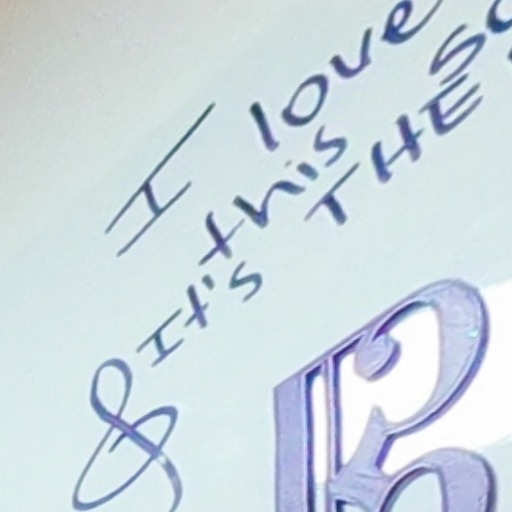 I love
this
It's THE
&